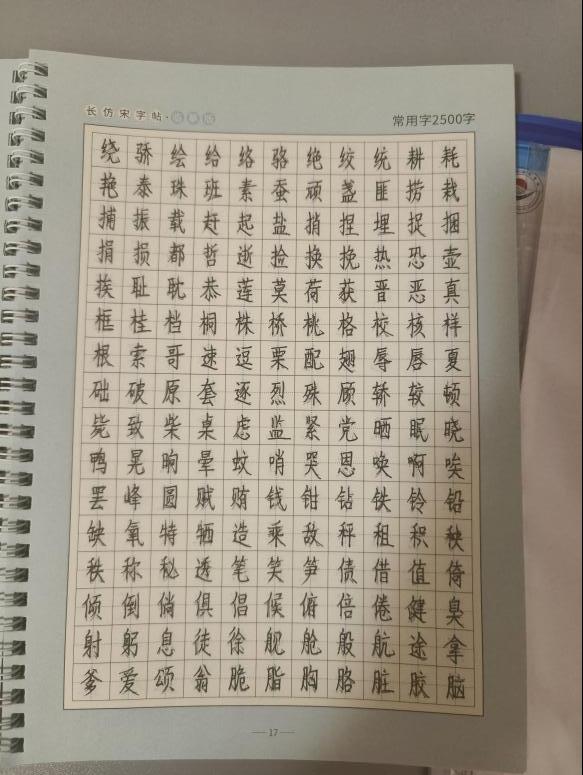 长仿宋字帖·临摹版
常用字2500字
绕骄绘给络骆绝绞统耕耗
艳泰珠班素蚕顽盏匪捞栽
捕振载赶起盐捎捏埋捉捆
捐损都哲逝捡换挽热恐壶
挨耻耽恭莲莫荷获晋恶真
框桂档桐株桥桃格校核样
根索哥速逗栗配翅辱唇夏
础破原套逐烈殊顾轿较顿
毙致柴桌虑监紧党晒眠晓
鸭晃晌晕蚊哨哭恩唤啊唉
罢峰圆贼贿钱钳钻铁铃铅
缺氧特牺造乘敌秤租积秧
秩称秘透笔笑笋债借值倚
倾倒倘俱倡候俯倍倦健臭
射躬息徒徐舰舱般航途拿
爹爱颂翁脆脂胸胳脏胶脑
17